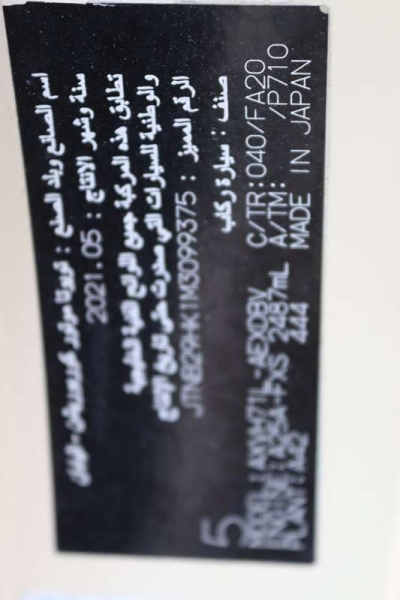 اسم الصانع وبلد الصنع : تويوتا موتور كوربوريشن - اليابان
سنة وشهر الانتاج : 2021.05
تطابق هذه المركبة جميع اللوائح الفنية الخليجية
والوطنية للسيارات التي صدرت حتى تاريخ الإنتاج
الرقم المميز : JTNB29HK1M3099375
صنف : سيارة ركاب
5
MODEL: AXVH71L-AEXDBV C/TR: 040/FA20
ENGINE: A25A-FXS 2487mL A/TM: /P710
PLANT: A42 444 MADE IN JAPAN